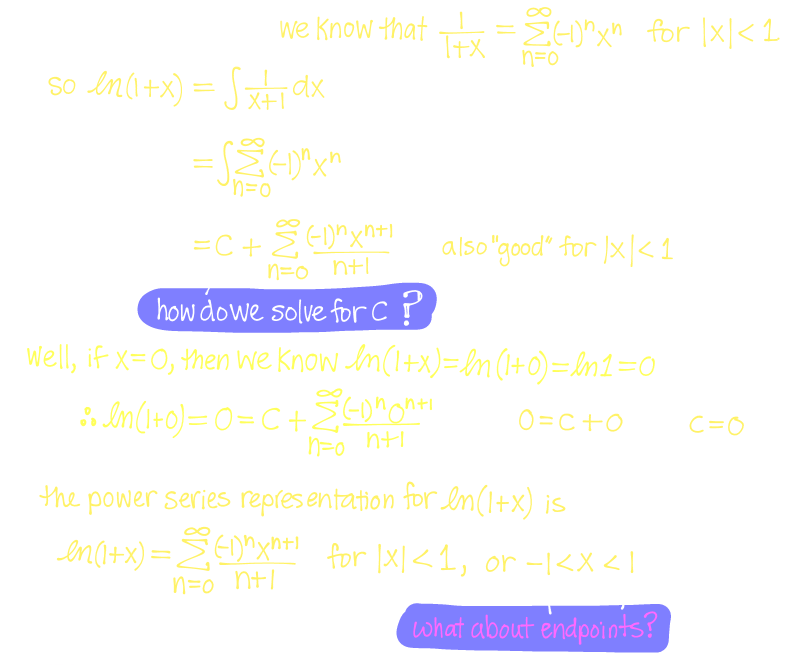 we know that 1/(1+x) = ∑_{n=0}^{∞} (-1)^n x^n for |x| < 1
so ln(1+x) = ∫ 1/(x+1) dx
= ∫ ∑_{n=0}^{∞} (-1)^n x^n
= C + ∑_{n=0}^{∞} (-1)^n x^{n+1}/(n+1) also "good" for |x| < 1
how do we solve for C ?
Well, if x = 0, then we know ln(1+x) = ln(1+0) = ln 1 = 0
∴ ln(1+0) = 0 = C + ∑_{n=0}^{∞} (-1)^n 0^{n+1}/(n+1) 0 = C + 0 C = 0
the power series representation for ln(1+x) is
ln(1+x) = ∑_{n=0}^{∞} (-1)^n x^{n+1}/(n+1) for |x| < 1, or -1 < x < 1
what about endpoints?